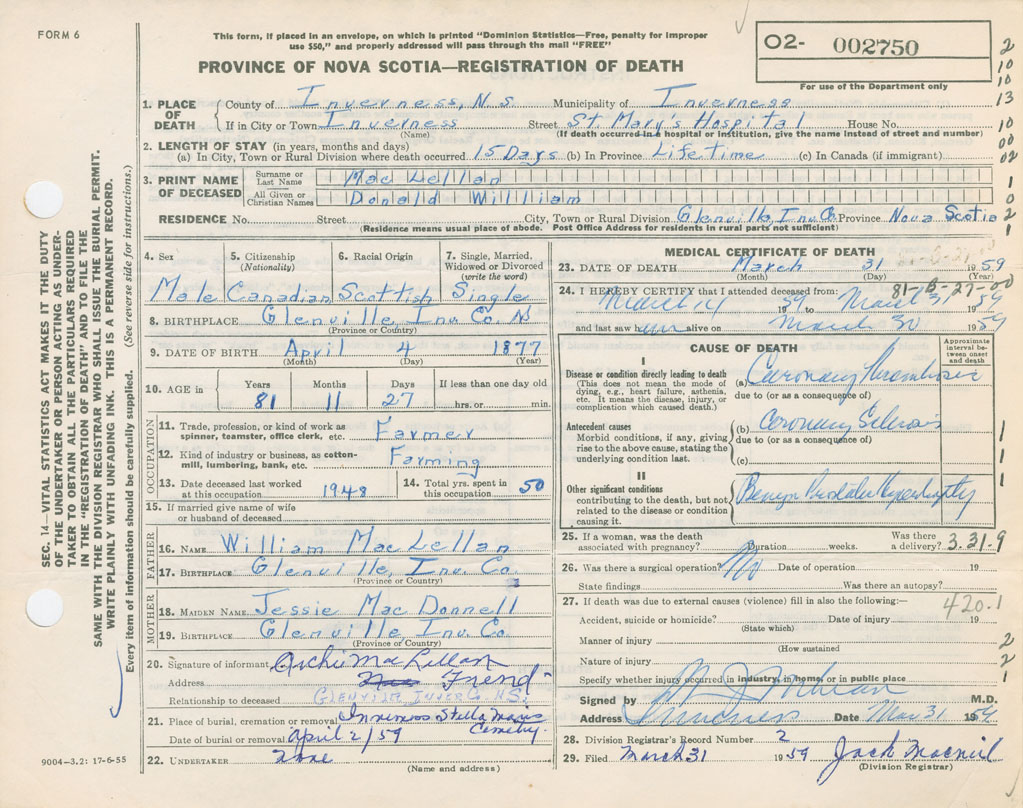 FORM 6
This form, if placed in an envelope, on which is printed "Dominion Statistics—Free, penalty for improper
use $50," and properly addressed will pass through the mail "FREE"
PROVINCE OF NOVA SCOTIA—REGISTRATION OF DEATH
02- 002750
For use of the Department only
2
10
10
13
10
00
02
1
0
2
1
SEC. 14—VITAL STATISTICS ACT MAKES IT THE DUTY
OF THE UNDERTAKER OR PERSON ACTING AS UNDER-
TAKER TO OBTAIN ALL THE PARTICULARS REQUIRED
IN THE "REGISTRATION OF DEATH" AND TO FILE THE
SAME WITH THE DIVISION REGISTRAR WHO SHALL ISSUE THE BURIAL PERMIT.
WRITE PLAINLY WITH UNFADING INK. THIS IS A PERMANENT RECORD.
Every item of information should be carefully supplied. (See reverse side for instructions.)
1. PLACE OF DEATH
County of Inverness, N.S Municipality of Inverness
If in City or Town Inverness Street St. Mary's Hospital House No.
(Name) (If death occurred in a hospital or institution, give the name instead of street and number)
2. LENGTH OF STAY (in years, months and days)
(a) In City, Town or Rural Division where death occurred 15 Days (b) In Province Life time (c) In Canada (if immigrant)
3. PRINT NAME OF DECEASED
Surname or Last Name Mac Lellan
All Given or Christian Names Donald Willliam
RESIDENCE No. Street City, Town or Rural Division Glenville, Inv. Co. Province Nova Scotia
(Residence means usual place of abode. Post Office Address for residents in rural parts not sufficient)
4. Sex 5. Citizenship (Nationality) 6. Racial Origin 7. Single, Married, Widowed or Divorced (write the word)
Male Canadian Scottish Single
8. BIRTHPLACE Glenville, Inv. Co. NS
(Province or Country)
9. DATE OF BIRTH April 4 1877
(Month) (Day) (Year)
10. AGE in Years Months Days If less than one day old
81 11 27 hrs. or min.
OCCUPATION
11. Trade, profession, or kind of work as spinner, teamster, office clerk, etc. Farmer
12. Kind of industry or business, as cotton-mill, lumbering, bank, etc. Farming
13. Date deceased last worked at this occupation 1948 14. Total yrs. spent in this occupation 50
15. If married give name of wife or husband of deceased
FATHER
16. NAME William MacLellan
17. BIRTHPLACE Glenville, Inv. Co.
(Province or Country)
MOTHER
18. MAIDEN NAME Jessie Mac Donnell
19. BIRTHPLACE Glenville Inv. Co.
(Province or Country)
20. Signature of informant Archie MacLellan
Address Friend
Relationship to deceased GLENVILLE INVER Co. NS.
21. Place of burial, cremation or removal Inverness Stella Maris Cemetery
Date of burial or removal April 2/59
22. UNDERTAKER none
(Name and address)
9004-3.2: 17-6-55
MEDICAL CERTIFICATE OF DEATH
23. DATE OF DEATH March 31 1959
(Month) (Day) (Year)
81-B-27-00
24. I HEREBY CERTIFY that I attended deceased from:
March 14 1959 to March 31 1959
and last saw him alive on March 30 1959
CAUSE OF DEATH
Approximate interval between onset and death
I
Disease or condition directly leading to death
(This does not mean the mode of dying, e.g., heart failure, asthenia, etc. It means the disease, injury, or complication which caused death.)
(a) Coronary Thrombosis
due to (or as a consequence of)
Antecedent causes
Morbid conditions, if any, giving rise to the above cause, stating the underlying condition last.
(b) Coronary Sclerosis
due to (or as a consequence of)
(c)
1
1
1
II
Other significant conditions
contributing to the death, but not related to the disease or condition causing it.
Benign Prostatic Hypertrophy
25. If a woman, was the death associated with pregnancy? Duration weeks. Was there a delivery? 3.31.9
26. Was there a surgical operation? No Date of operation 19
State findings Was there an autopsy?
27. If death was due to external causes (violence) fill in also the following:—
420.1
Accident, suicide or homicide? Date of injury 19
(State which)
Manner of injury 2
(How sustained
Nature of injury 2
Specify whether injury occurred in industry, in home, or in public place 1
Signed by M.D.
Address Inverness Date Mar 31 1959
28. Division Registrar's Record Number 2
29. Filed March 31 1959 Jack Macneil
(Division Registrar)